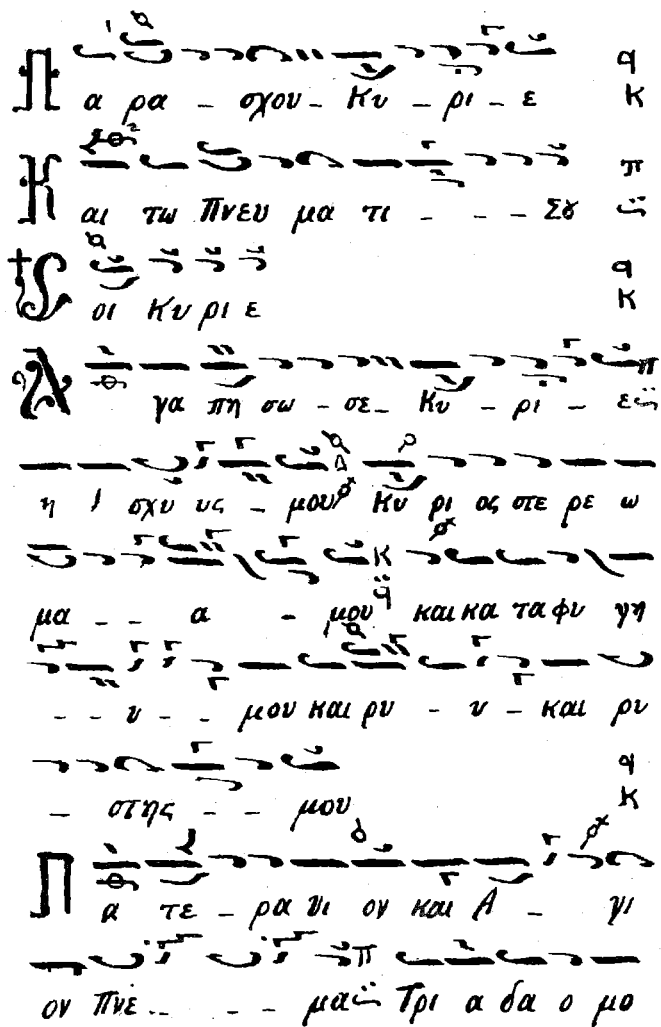 Πα ρα _ σχου _ Κυ _ ρι _ ε
Και τω Πνευ μα τι _ _ _ Σȣ
Σοι Κυ ρι ε
Α γα πη σω _ σε _ Κυ _ ρι _ ε
η Ι σχυ υς _ μου Κυ ρι ος στε ρε ω
μα _ _ α _ μου και κα τα φυ γη
_ _ υ _ _ μου και ρυ _ υ _ και ρυ
_ στης _ _ μου
Πα τε _ ρα Υι ον και Α _ γι
ον Πνε _ _ _ _ μα Τρι α δα ο μο